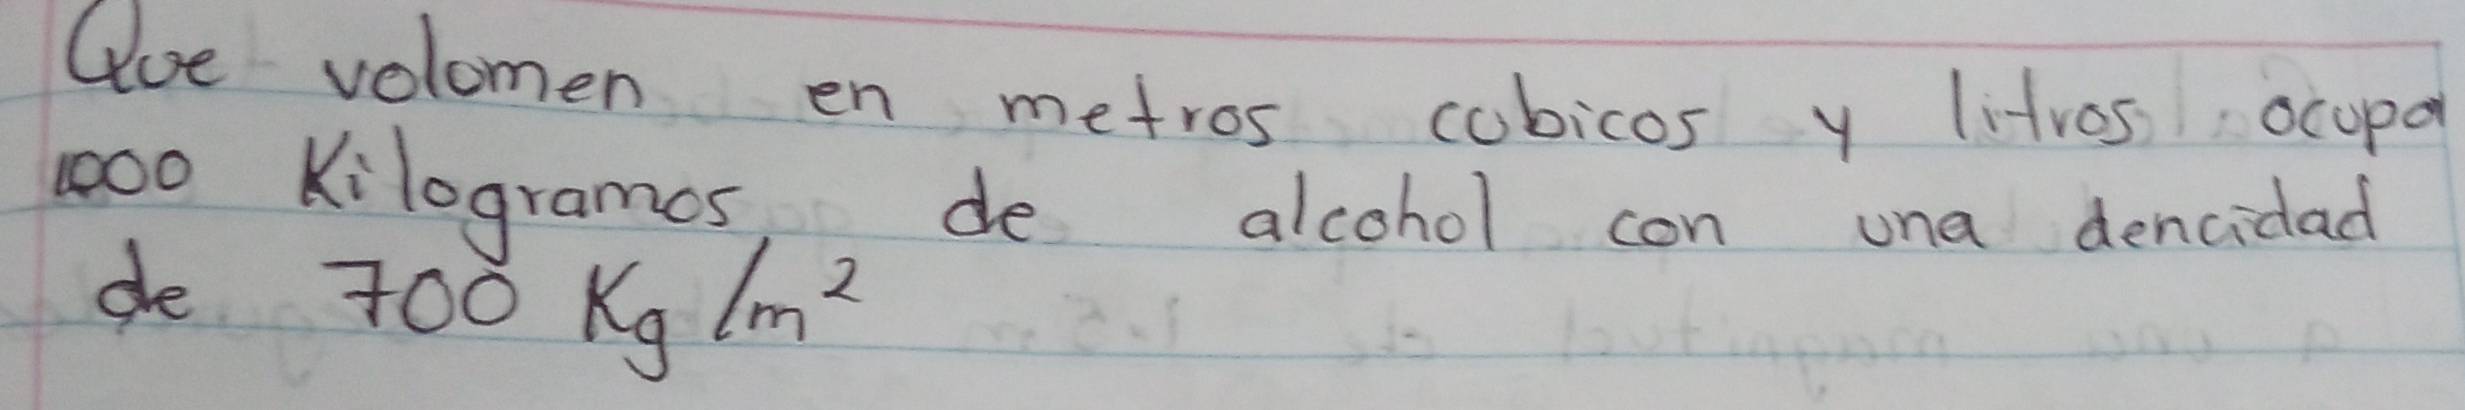 Que volomen en metros cubicos y litros ocupa
1000 Kilogramos de alcohol con una dencidad
de 700 Kg/m²